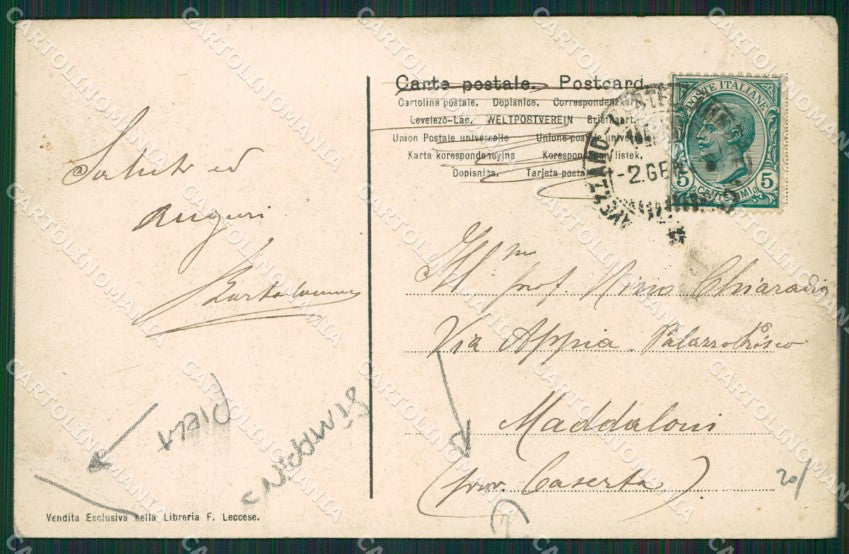 Carte postale. Postcard.
Cartolina postale. Dopisnice. Correspondenzkarte.
Levelező-Lap. WELTPOSTVEREIN Brief kart.
Union Postale universelle Unione postale universale
Karta korespondencyjna Korespondenční lístek.
Dopisnica. Tarjeta postal
POSTE ITALIANE
5 CENTESIMI 5
AVEZZANO
-2.GE
Saluti ed
auguri
Bartolomeo
Ill.mo prof. Nino Chiaradia
Via Appia Palazzo
Maddaloni
(prov. Caserta)
PIEGA
20/
Vendita Esclusiva nella Libreria F. Leccese.
CARTOLINOMANIA